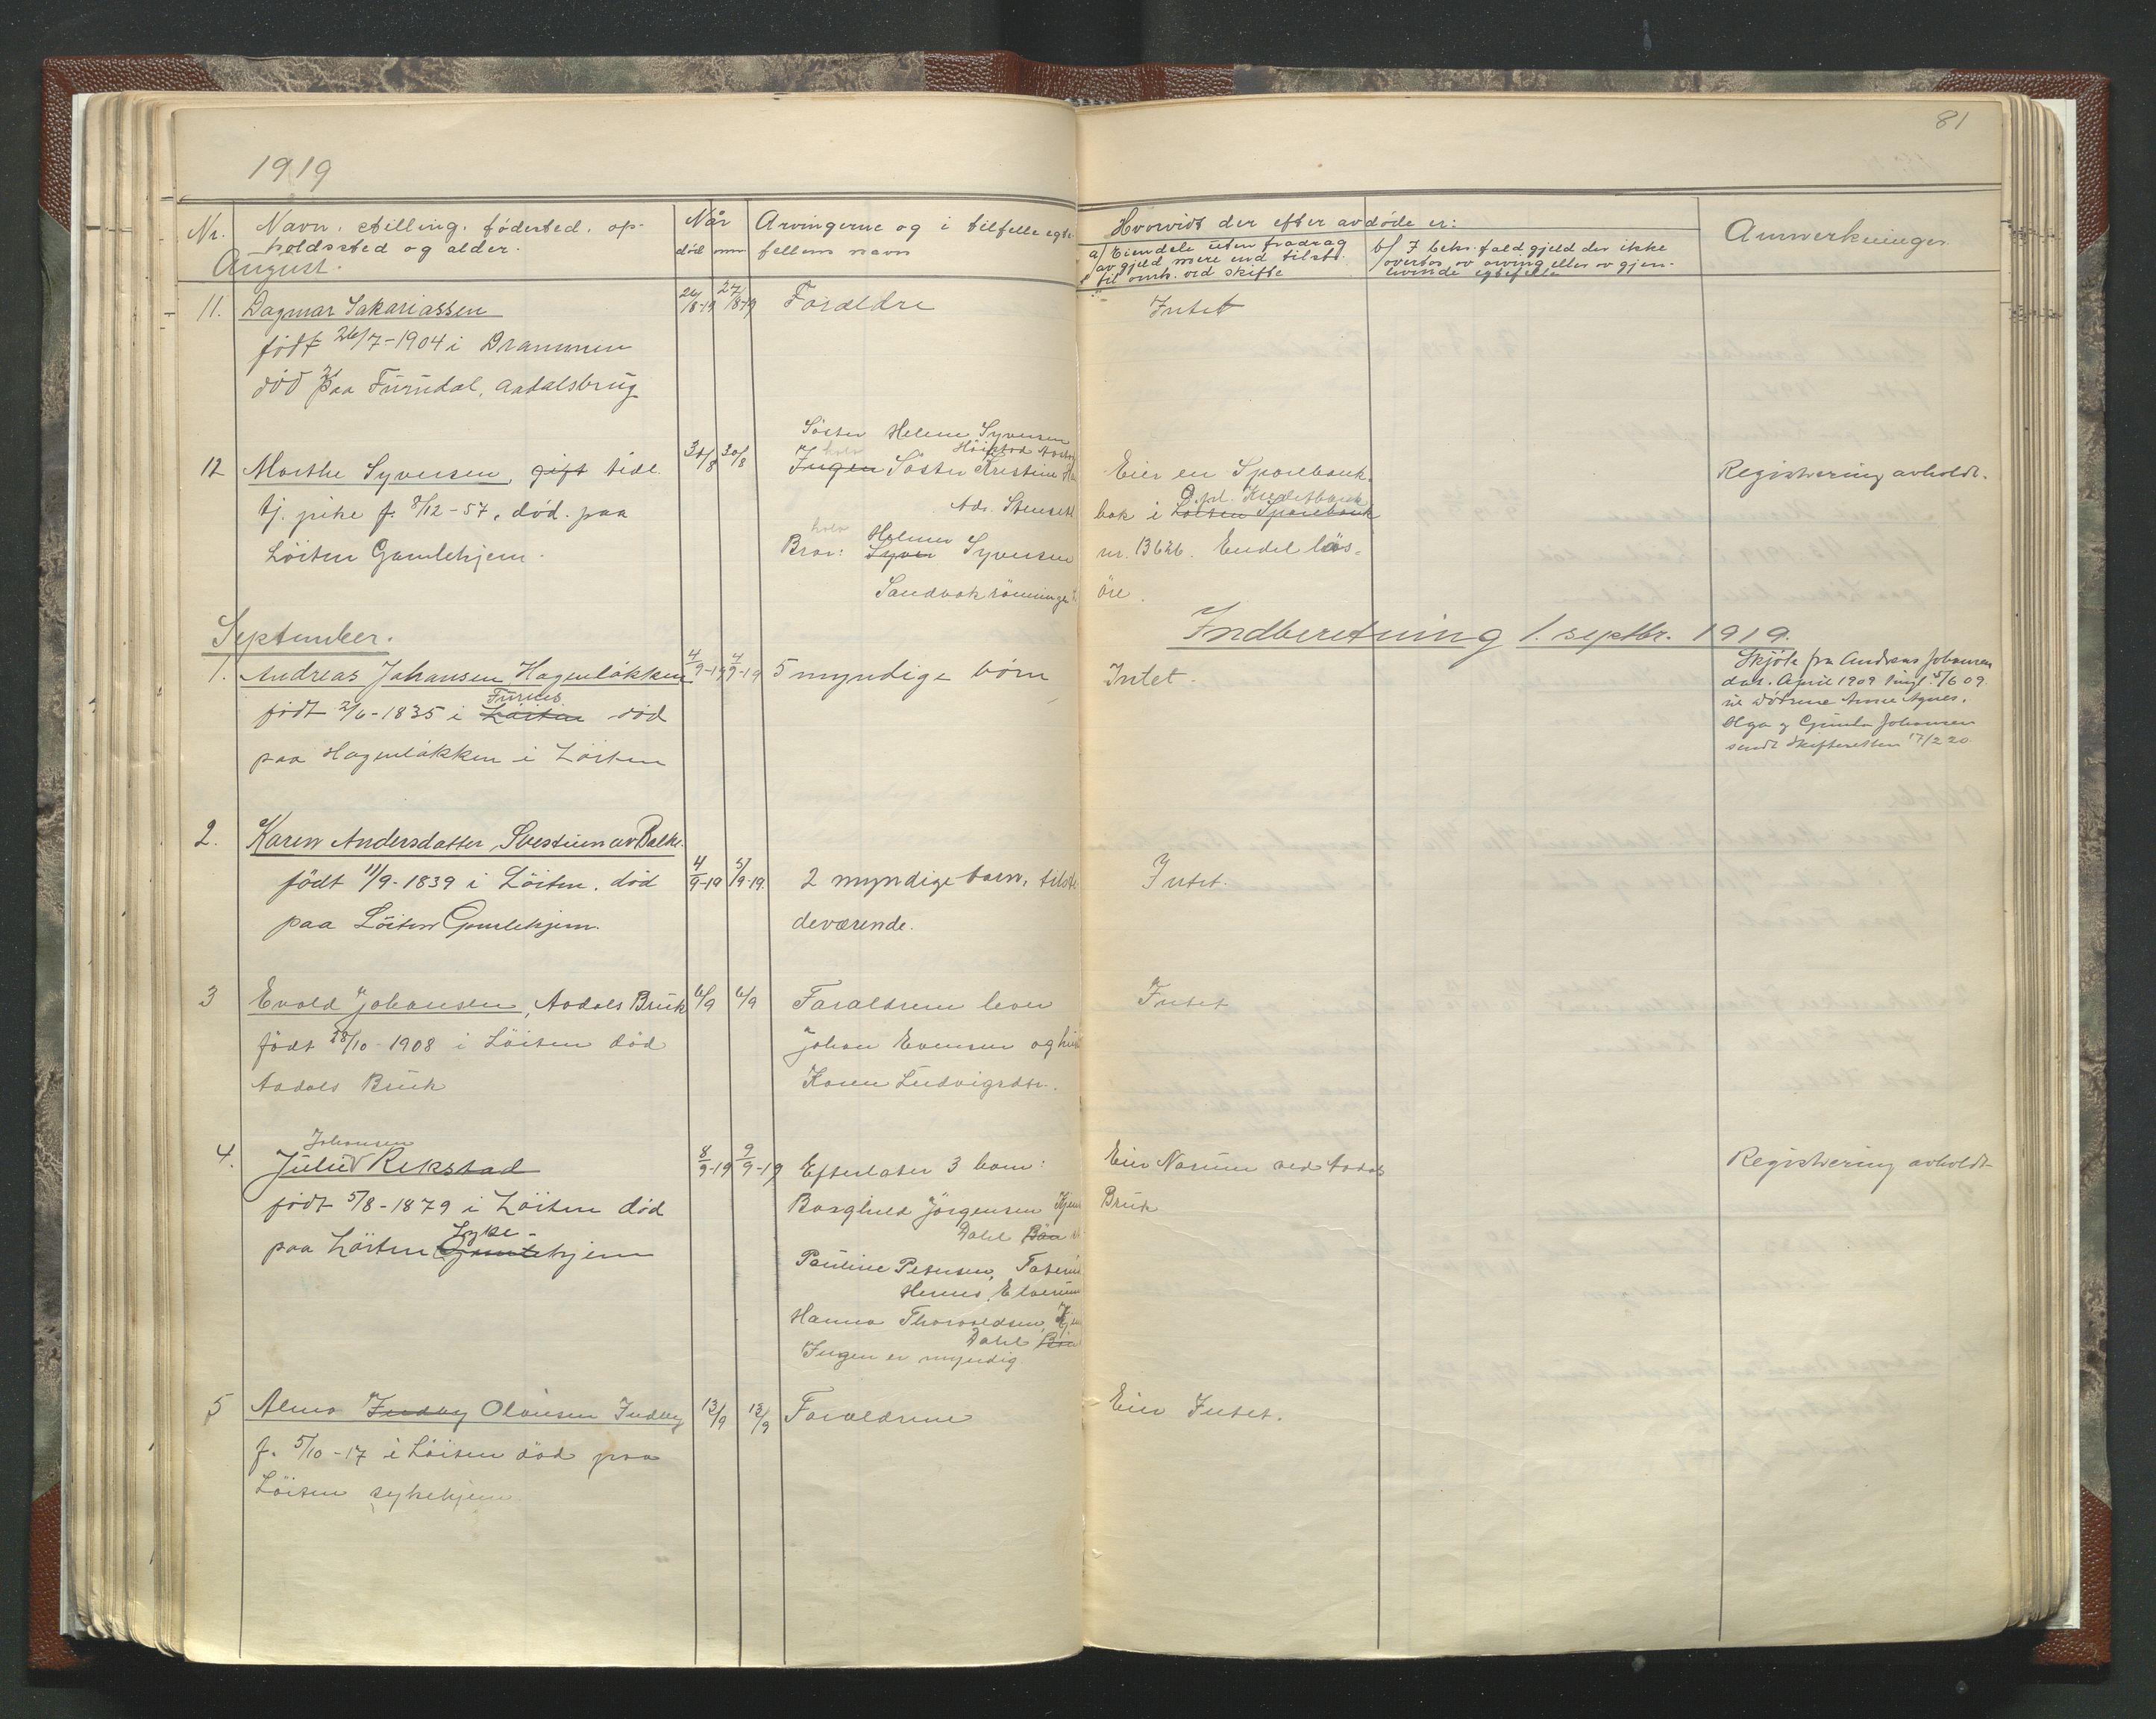 1919
81
Nr. Navn, stilling, fødested, op-
holdssted og alder.
Når
død
Arvingerne og i tilfelle egte-
fellens navn
Hvorvidt der efter avdøde er:
a/ Eiendele uten fradrag
av gjeld mere end tilstr.
til omk. ved skifte
b/ I bekr. fald gjeld der ikke
overtas av arving eller av gjen-
levende egtefelle
Anmerkninger
August.
11. Dagmar Sakariassen 26/8-19 27/8-19 Forældre Intet
født 26/7-1904 i Drammen
død paa Furudal, Aadalsbrug
Söster Helene Syversen
12 Marthe Syversen, gift tidl. 30/8 30/8 Ingen Söster Kristine Eier en Sparebank- Registrering avholdt.
tj. pike f. 8/12-57, död paa
D.pl. Kreditbank
bok i Löiten Sparebank
Löiten Gamlehjem.
halv Helmer
Bror: Syver Syversen nr. 13626. Endel løs-
öre.
September. Indberetning 1. septbr. 1919.
1. Andreas Johansen Hagenløkken 4/9-19 4/9-19 5 myndige børn Intet.
født 2/6-1835 i Löiten Furnes død
paa Hagenløkken i Löiten
Skjöte fra Andreas Johansen
dat. April 1909 tingl. 5/6 09.
til døtrene Anne Agnes,
Olga og Gunda Johansen
sendt Skifteretten 17/2 20
2. Karen Andersdatter,
født 11/9-1839 i Löiten, død 4/9-19 5/9-19 2 myndige barn, Intet.
paa Löiten Gamlehjem. deværende.
3 Evald Johansen, Aadals Bruk 6/9 6/9 Forældrene lever Intet
født 28/10-1908 i Löiten død Johan Evensen og
Aadals Bruk Karen Ludvigsdtr.
4. Johansen
Julius Rekstad 8/9-19 9/9-19 Efterlater 3 barn: Eier Norum ved Aadals Registrering avholdt
født 5/8-1879 i Löiten død Borghild Jörgensen Bruk
Dahl
Syke-
paa Löiten Gamlehjem
Pauline Petersen,
Hernes, Elverum
Hanna Thorvaldsen,
Dahl
Ingen er myndig.
5 Alma Indby Olausen Indby 13/9 13/9 Forældrene Eier Intet.
f. 5/10-17 i Löiten död paa
Löiten sykehjem